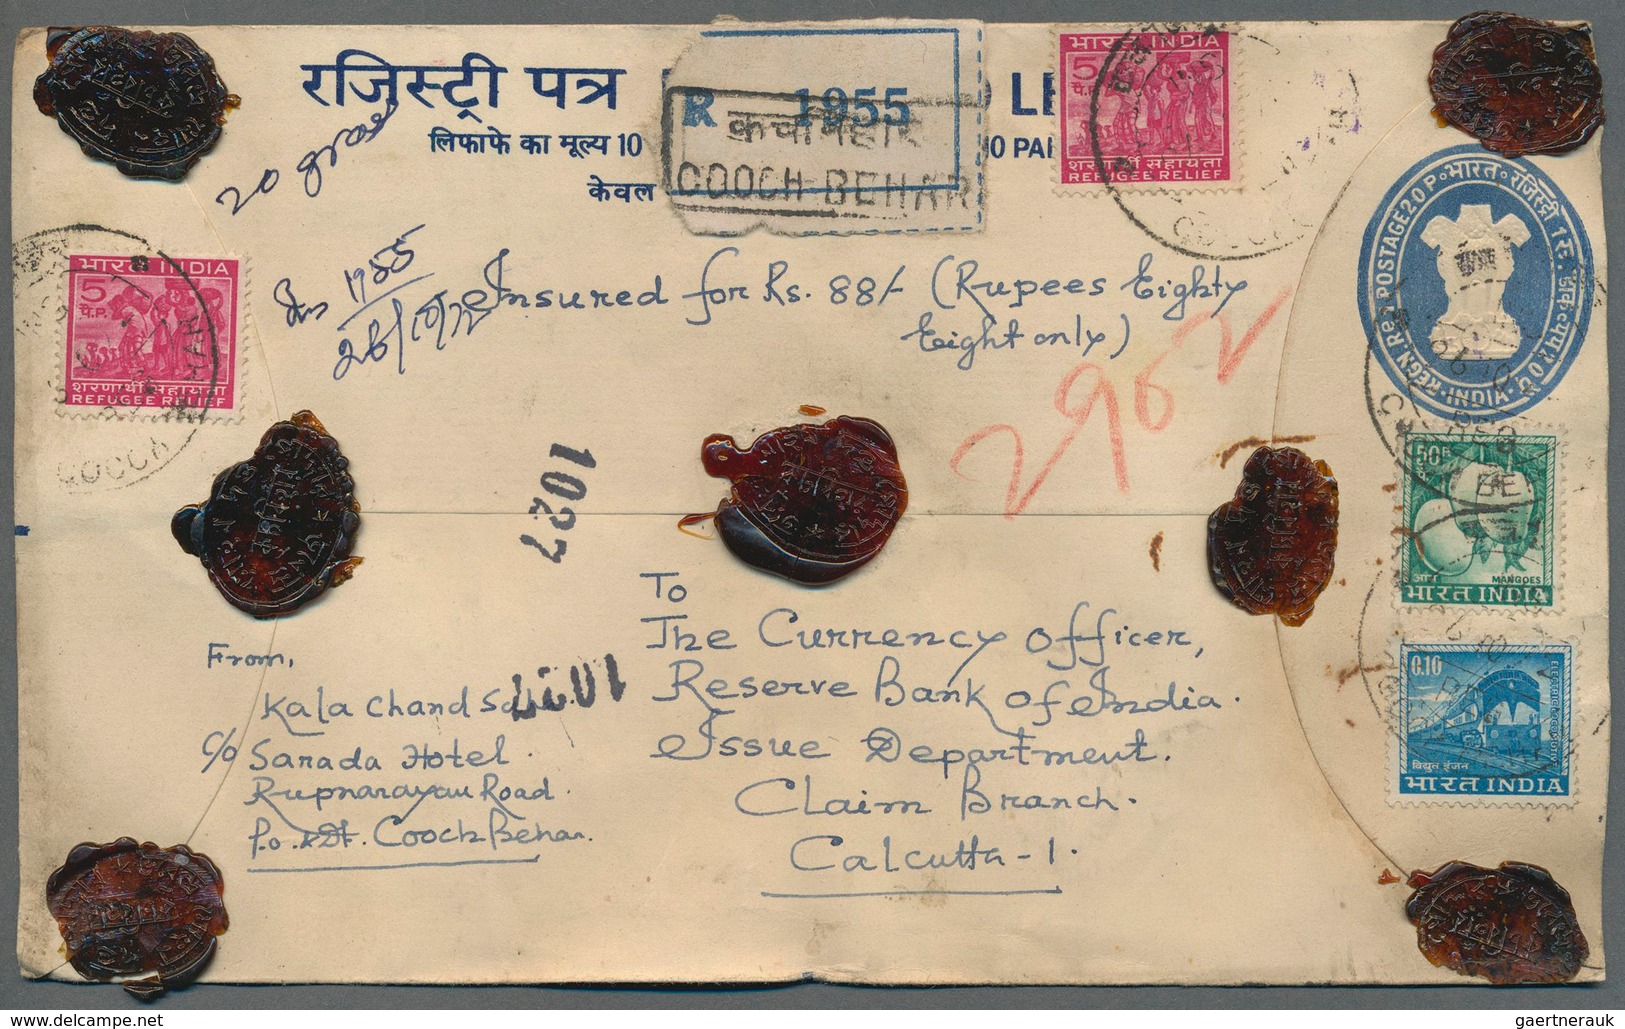 रजिस्ट्री पत्र
लिफाफे का मूल्य 10
केवल
20 grams
R 1955
COOCH BEHAR
LE
0 PAI
भारत INDIA
5
प.P.
शरणार्थी सहायता
REFUGEE RELIEF
भारत INDIA
5
प.P.
शरणार्थी सहायता
REFUGEE RELIEF
REGN. Re 1 POSTAGE 20 P • भारत • रजिस्ट्री 1 रु.
INDIA
1955
26/10/72
Insured for Rs. 88/- (Rupees Eighty
Eight only)
2962
1027
1027
50
आम
MANGOES
भारत INDIA
0.10
ELECTRIC LOCOMOTIVE
विद्युत इंजन
भारत INDIA
From,
Kala Chand
C/o Sarada Hotel.
Rupnarayan Road.
P.o. & Dt. Cooch Behar.
To
The Currency Officer,
Reserve Bank of India.
Issue Department.
Claim Branch.
Calcutta - 1.
gaertnerauk